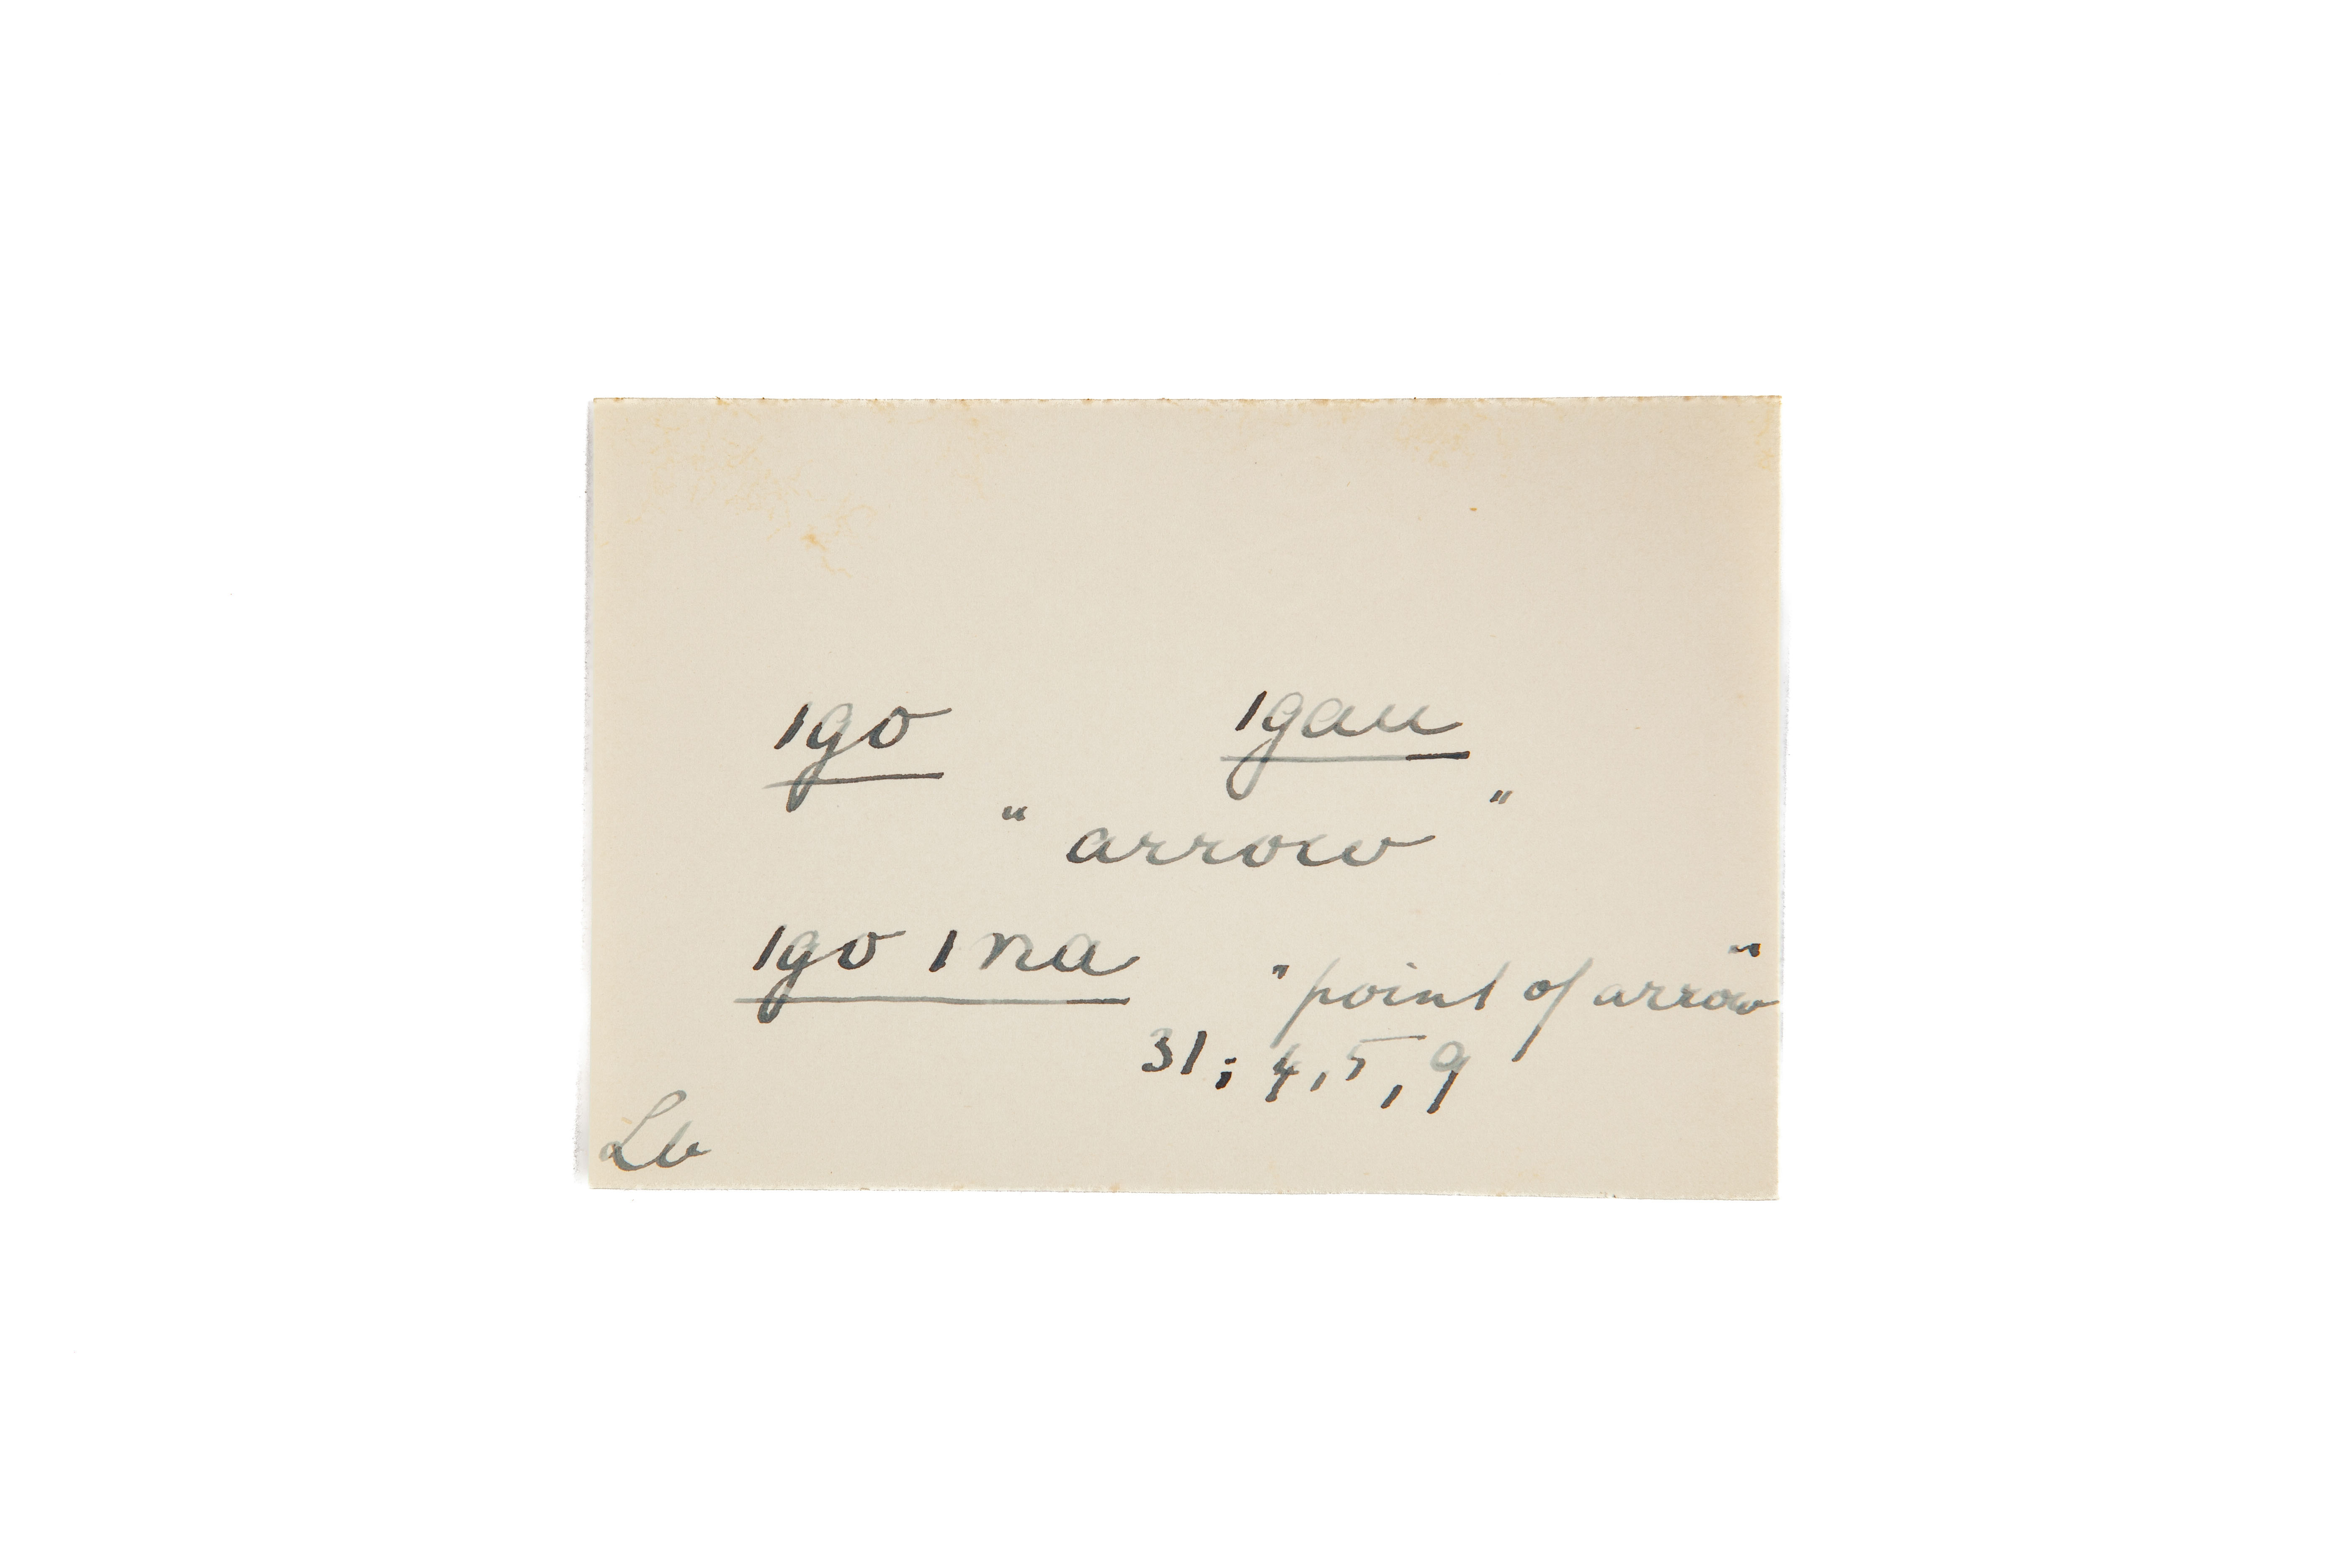 igo igau
"arrow"
igo ina "point of arrow"
31; 4, 5, 9
Lb